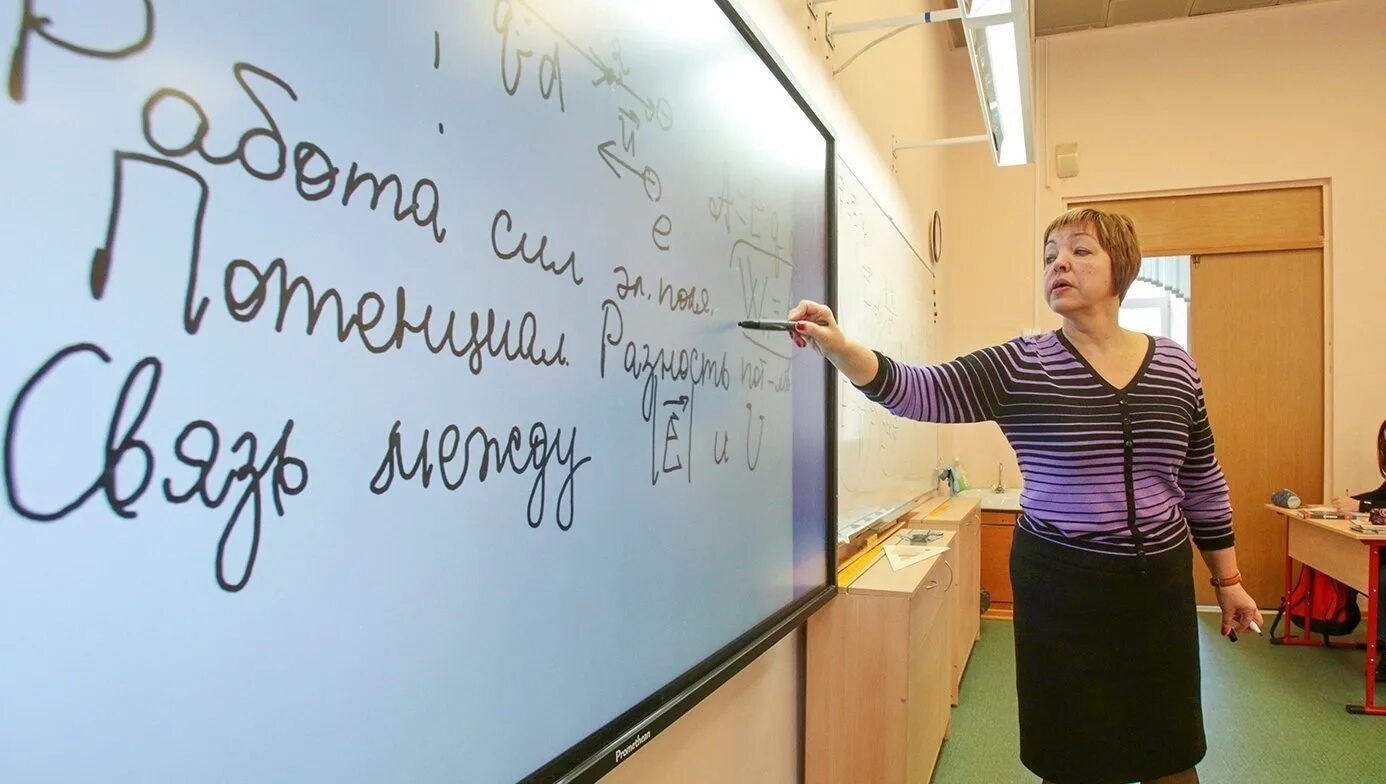 Р
q-d
N
e
A=Eq
W=
Работа сил эл. поля.
Потенциал. Разность пот-
Связь между |E| и U
Promethean